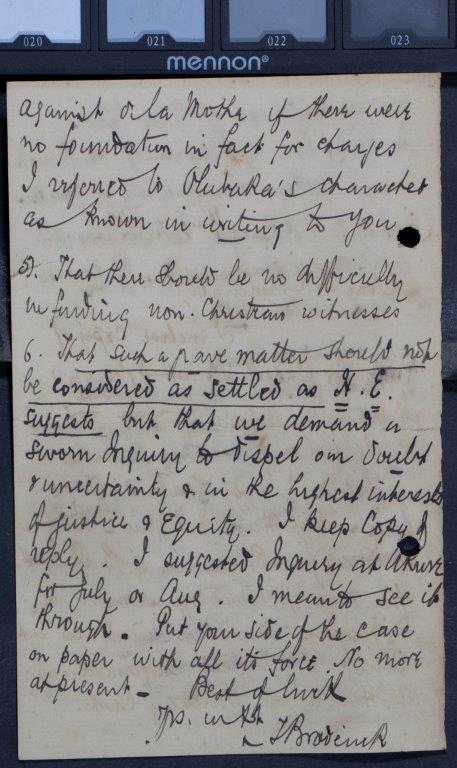 020 021 022 023
mennon®
against de la Mothe if there were
no foundation in fact for charges
I referred to Olubaka's character
as known in writing to you
5). That there should be no difficulty
in finding non-Christian witnesses
6. That such a grave matter should not
be considered as settled as H. E.
suggests but that we demand a
sworn Inquiry to dispel our doubt
& uncertainty & in the highest interests
of justice & Equity. I keep Copy of
reply. I suggested Inquiry at Akure
for July or Aug. I mean to see it
through. Put your side of the case
on paper with all its force. No more
at present - Best of luck
Yrs. in Xt
T Broderick